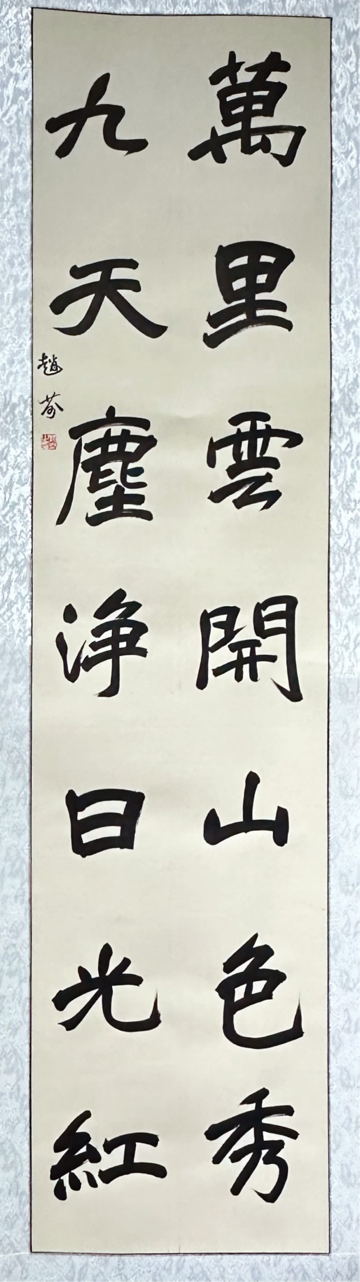 萬里雲開山色秀
九天塵淨日光紅
趙